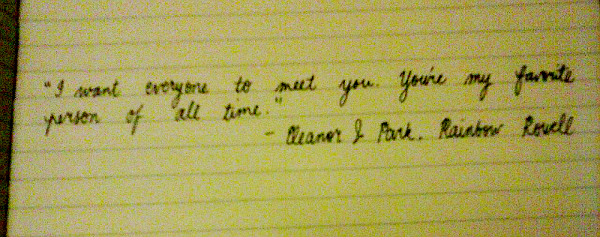 "I want everyone to meet you. You're my favorite
person of all time."
- Eleanor & Park. Rainbow Rowell